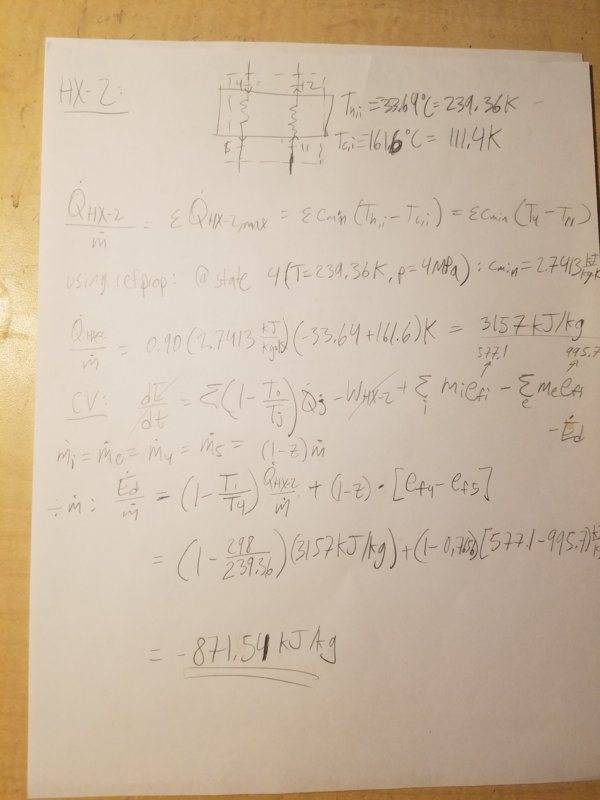 HX-2:
T4 12
Th,i = -33.64°C = 239.36K
Tc,i = -161.6°C = 111.4K
5 11
Q̇HX-2/ṁ = ε Q̇HX-2,max = ε cmin (Th,i - Tc,i) = ε cmin (T4 - T11)
using refprop: @ state 4 (T=239.36K, p=4MPa): cmin = 2.7413 kJ/kg·K
Q̇HX-2/ṁ = 0.90 (2.7413 kJ/kg·K)(-33.64 + 161.6)K = 3157 kJ/kg
577.1 995.7
CV: dE/dt = Σ(1 - To/Tj) Q̇j - ẆHX-2 + Σi ṁi efi - Σe ṁe efe - Ėd
ṁi = ṁe = ṁ4 = ṁ5 = (1-z)ṁ
÷ ṁ: Ėd/ṁ = (1 - T1/T4) Q̇HX-2/ṁ + (1-z) · [ef4 - ef5]
= (1 - 298/239.36)(3157 kJ/kg) + (1 - 0.765)[577.1 - 995.7] kJ/kg
= -871.54 kJ/kg